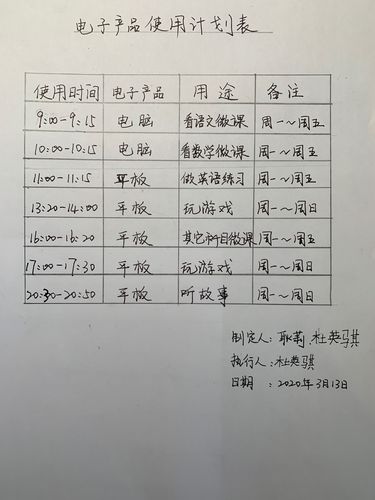 电子产品使用计划表
使用时间 电子产品 用途 备注
9:00-9:15 电脑 看语文微课 周一～周五
10:00-10:15 电脑 看数学微课 周一～周五
11:00-11:15 平板 做英语练习 周一～周五
13:20-14:00 平板 玩游戏 周一～周日
16:00-16:20 平板 其它科目微课 周一～周五
17:00-17:30 平板 玩游戏 周一～周日
20:30-20:50 平板 听故事 周一～周日
制定人: 耿莉、杜英骐
执行人: 杜英骐
日期 : 2020年3月13日